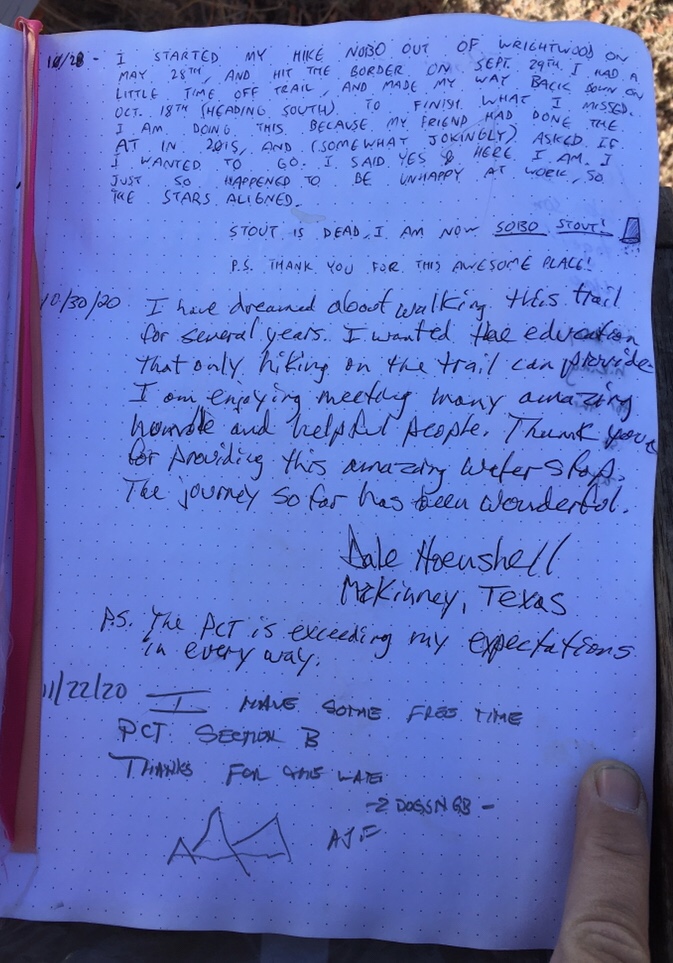 10/28 - I STARTED MY HIKE NOBO OUT OF WRIGHTWOOD ON
MAY 28TH, AND HIT THE BORDER ON SEPT. 29TH. I HAD A
LITTLE TIME OFF TRAIL, AND MADE MY WAY BACK DOWN ON
OCT. 18TH (HEADING SOUTH) TO FINISH WHAT I MISSED.
I AM DOING THIS BECAUSE MY FRIEND HAD DONE THE
AT IN 2015, AND (SOMEWHAT JOKINGLY) ASKED IF
I WANTED TO GO. I SAID YES & HERE I AM. I
JUST SO HAPPENED TO BE UNHAPPY AT WORK, SO
THE STARS ALIGNED.
STOUT IS DEAD, I AM NOW SOBO STOUT!
P.S. THANK YOU FOR THIS AWESOME PLACE!
10/30/20 I have dreamed about walking this trail
for several years. I wanted the education
that only hiking on the trail can provide.
I am enjoying meeting many amazing
humble and helpful people. Thank you
for providing this amazing water stop.
The journey so far has been wonderful.
Dale Hoenshell
McKinney, Texas
P.S. The PCT is exceeding my expectations
in every way.
11/22/20 I HAVE SOME FREE TIME
PCT SECTION B
THANKS FOR THE
- 2 DOGS
AJF